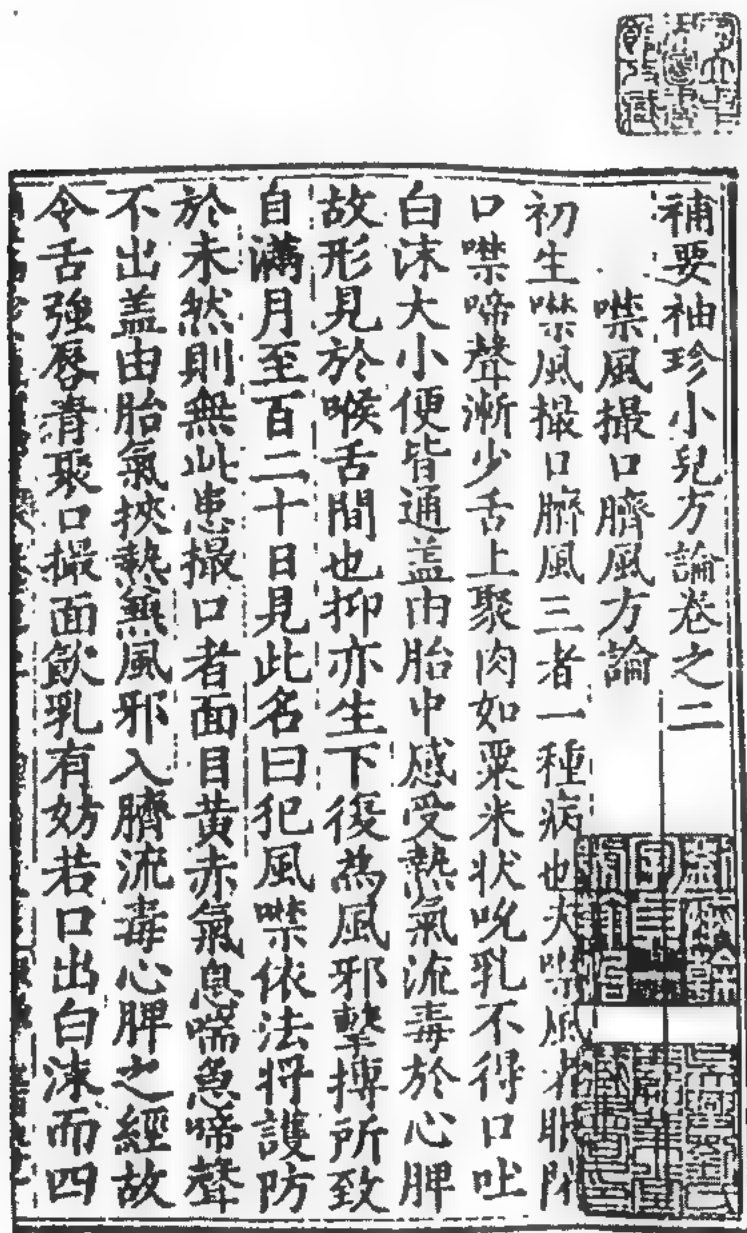 補要袖珍小兒方論卷之二
噤風撮口臍風方論
初生噤風撮口臍風三者一種病也夫噤風者眼閉
口噤啼聲漸少舌上聚肉如粟米状吮乳不得口吐
白沫大小便皆通盖由胎中感受熱氣流毒於心脾
故形見於喉舌間也抑亦生下後為風邪擊搏所致
自滿月至百二十日見此名曰犯風噤依法將護防
於未然則無此患撮口者面目黃赤氣息喘急啼聲
不出盖由胎氣挾熱兼風邪入臍流毒心脾之經故
令舌強唇青聚口撮面飲乳有妨若口出白沫而四